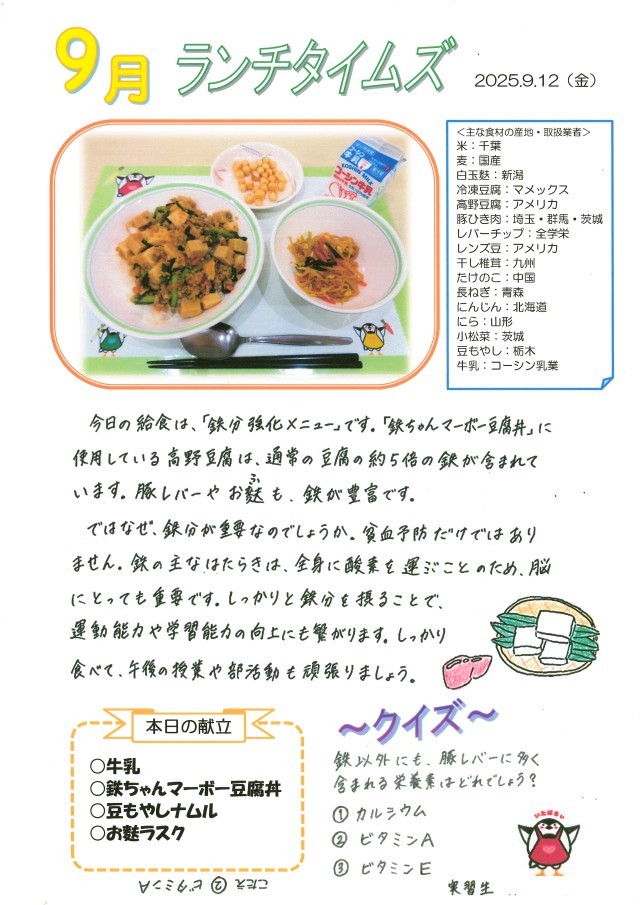 9月 ランチタイムズ 2025.9.12（金）
＜主な食材の産地・取扱業者＞
米：千葉
麦：国産
白玉麩：新潟
冷凍豆腐：マメックス
高野豆腐：アメリカ
豚ひき肉：埼玉・群馬・茨城
レバーチップ：全学栄
レンズ豆：アメリカ
干し椎茸：九州
たけのこ：中国
長ねぎ：青森
にんじん：北海道
にら：山形
小松菜：茨城
豆もやし：栃木
牛乳：コーシン乳業
牛乳
コーシン牛乳
今日の給食は、「鉄分強化メニュー」です。「鉄ちゃんマーボー豆腐丼」に
使用している高野豆腐は、通常の豆腐の約5倍の鉄が含まれて
います。豚レバーやお麩(ふ)も、鉄が豊富です。
ではなぜ、鉄分が重要なのでしょうか。貧血予防だけではあり
ません。鉄の主なはたらきは、全身に酸素を運ぶことのため、脳
にとっても重要です。しっかりと鉄分を摂ることで、
運動能力や学習能力の向上にも繋がります。しっかり
食べて、午後の授業や部活動も頑張りましょう。
本日の献立
○牛乳
○鉄ちゃんマーボー豆腐丼
○豆もやしナムル
○お麩ラスク
～クイズ～
鉄以外にも、豚レバーに多く
含まれる栄養素はどれでしょう？
① カルシウム
② ビタミンA
③ ビタミンE
いたばあい
実習生
こたえ ② ビタミンA